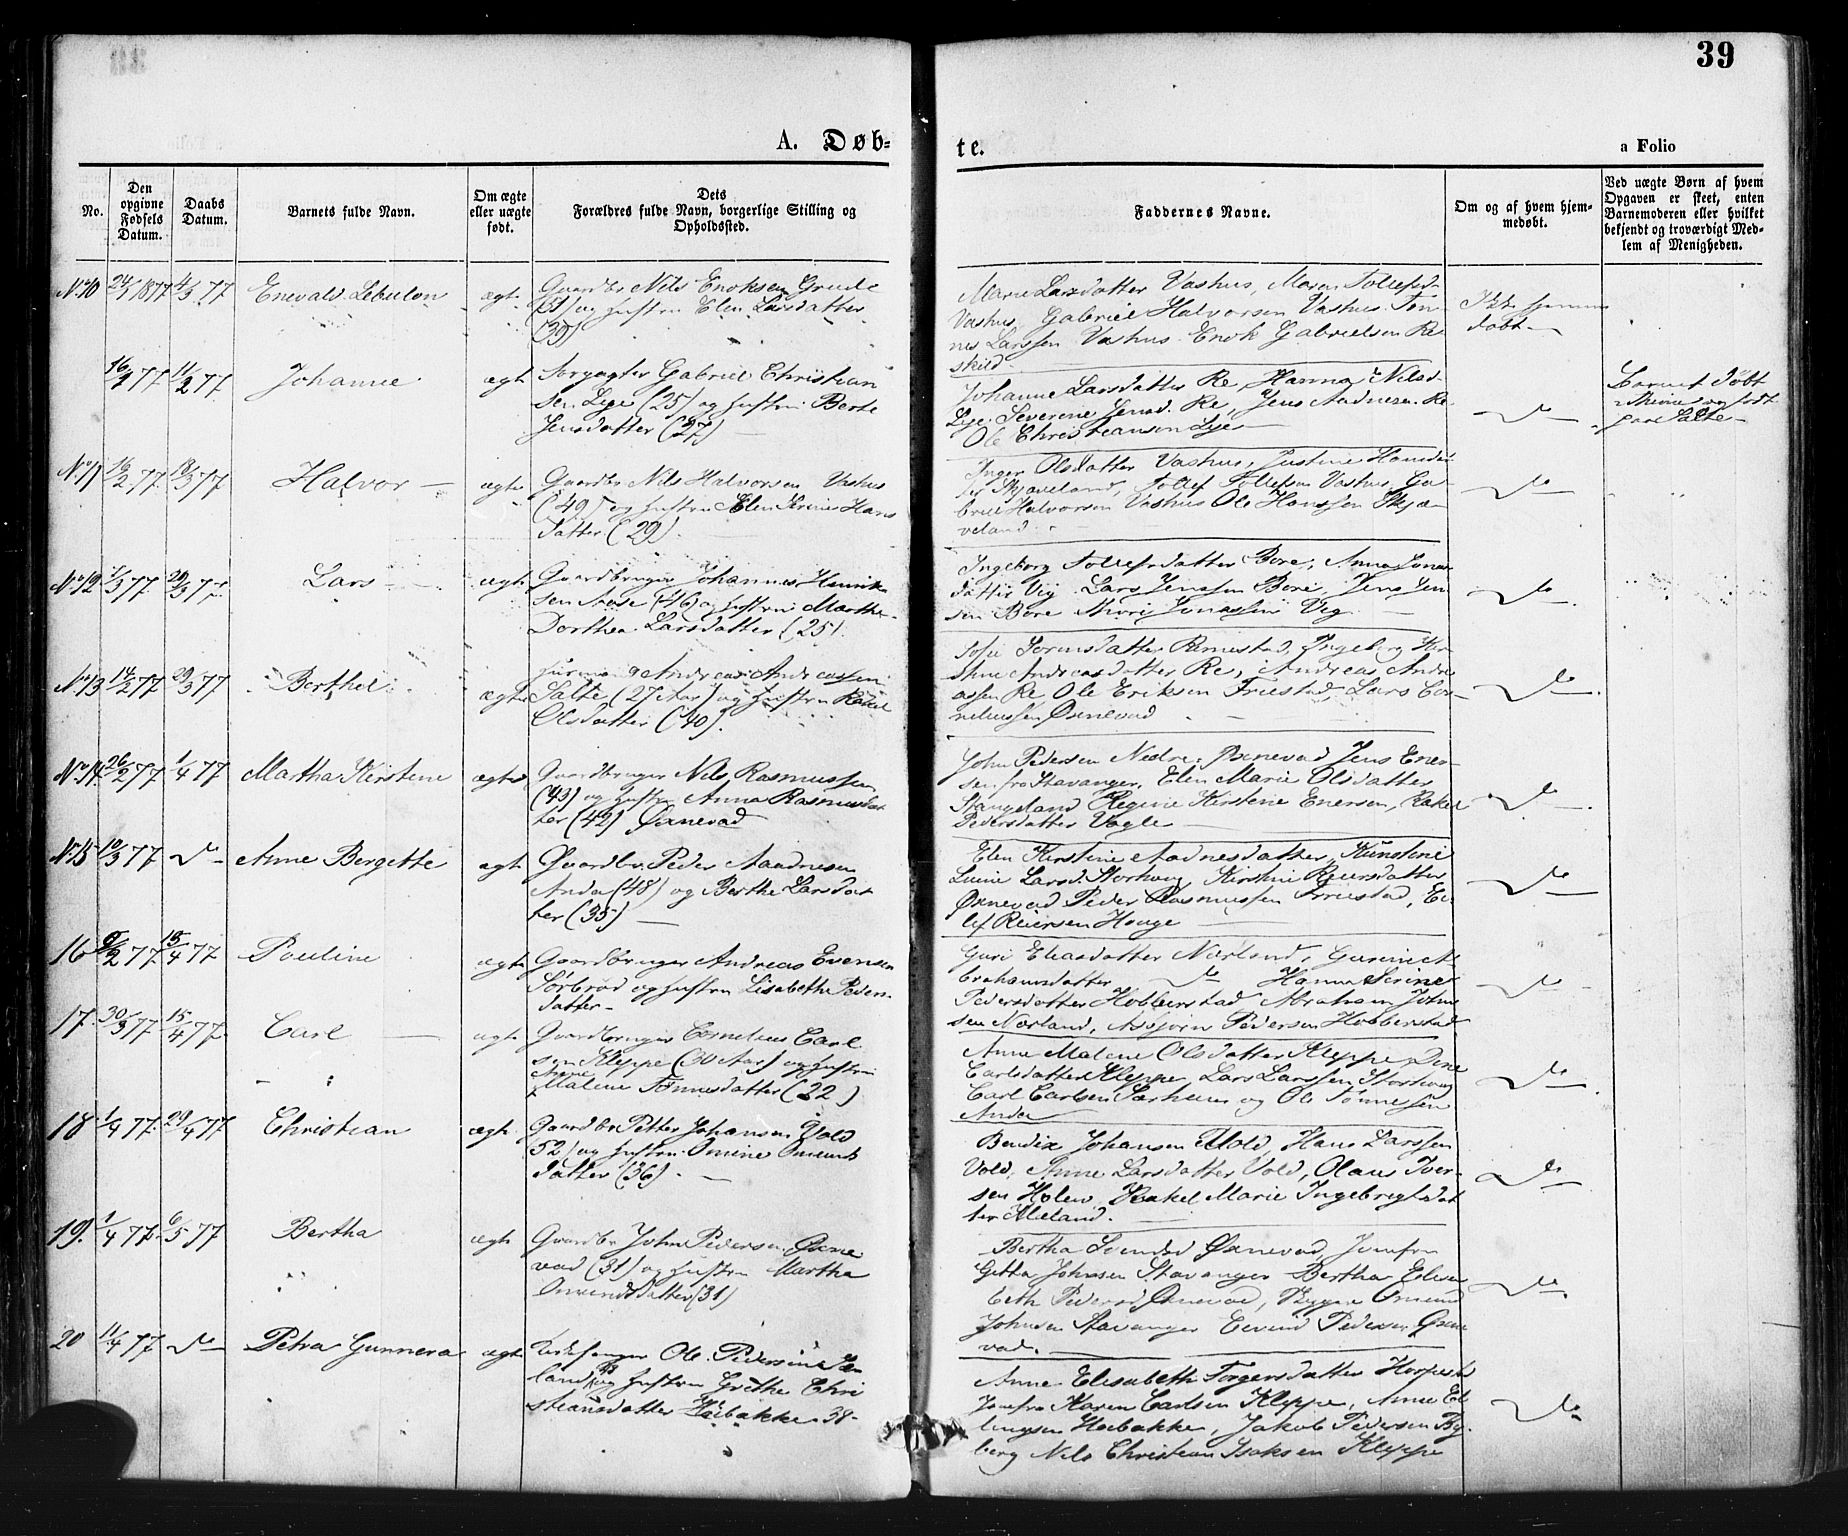 39
A. Døb-
te.
a Folio
No.
Den opgivne Fødsels Datum.
Daabs Datum.
Barnets fulde Navn.
Om ægte eller uægte født.
Dets Forældres fulde Navn, borgerlige Stilling og Opholdssted.
Faddernes Navne.
Om og af hvem hjemmedøbt.
Ved uægte Børn af hvem Opgaven er skeet, enten Barnemoderen eller hvilket bekjendt og troværdigt Medlem af Menigheden.
No 10 24/1 1877 4/3 77 Enevald Lebulon ægte
Gaardbr Nils Enoksen Grude
(51) og hustru Elen Larsdatter
(39)
Marie Larsdatter Vashus, Maren Tollefsd.
Vashus, Gabriel Halvorsen Vashus. Tøn-
nes Larssen Vashus. Enok Gabrielsen Re
skild
Ikke hjemme
døbt
16/1 77 11/2 77 Johanne ægte
Gabriel Christian
sen Lye (25) og hustru Berte
Jensdatter (27)
Johanne Larsdatter Re, Hanna Nilsd.
Lye. Severine Jensd. Re, Jens Aadnesen Re
Ole Christiansen Lye
do
Barnet døbt
No 11 16/2 77 18/3 77 Halvor ægte
Gaardbr Nils Halvorsen Vashus
(49) og hustru Elen Serine Hans
datter (29)
Inger Olsdatter Vashus, Justine Hansdat
ter Skjæveland, Tollef Tollefsen Vashus, Ga-
briel Halvorsen Vashus Ole Hanssen Skjæ-
veland
do
No 12 1/3 77 20/3 77 Lars ægte
Gaardbruger Johannes Henrik
sen (46) og hustru Marthe
Dorthea Larsdatter (25).
Ingeborg Tollefsdatter Bore, Anna Jonas
datter Vig. Lars Jenssen Bore, Jens Jen
sen Bore Jonassen Vig
do
No 13 14/2 77 29/3 77 Berthel ægte
Huusmand Andreas Andreassen
Salte (27 Aar) og hustru Rakel
Olsdatter (40).
Sofie Sørensdatter Rimestad, Ingeborg Kir
stine Andreasdatter Re, Andreas Andre
assen Re Ole Eriksen Friestad, Lars Cor-
neliussen Øxnevad
do
No 14 26/2 77 1/4 77 Martha Kirstine ægte
Gaardbruger Nils Rasmussen
(43) og hustru Anna Rasmusdat
ter (42) Øxnevad
John Pedersen Nedre Øxnevad Jens Ener-
sen fra Stavanger, Elen Marie Olsdatter
Stangeland Regine Kirstine Enersen, Rakel
Pedersdatter Vagle
do
No 15 10/3 77 do Anne Bergette ægte
Gaardbr. Peder Aadnesen
Anda (48) og Berthe Larsdat
ter (35)
Elen Kirstine Aadnesdatter, Kirstine
Larsd. Storhoug, Kirstine Reiersdatter
Øxnevad Peder Rasmussen Friestad, Ei
lef Reiersen Houge
do
16 /2 77 15/4 77 Pauline ægte
Gaardbruger Andreas Evensen
Sørbrød og hustru Lisabeth Peders
datter
Guri Eliasdatter Nærland, Gurine A
brahamsdatter do Hanna Serine
Pedersdatter Hobberstad Abraham Johne
sen Nærland, Asbjørn Pedersen Hobberstad
do
17. 30/3 77 15/4 77. Carl ægte
Gaardbruger Cornelius Carl
sen Kleppe (30 Aar) og hustru
Anne
Malene Tønnesdatter (22)
Anne Malene Olsdatter Kleppe, Dine
Carlsdatter Kleppe, Lars Larssen Storhoug
Carl Carlsen Særheim og Ole Tønnessen
Anda
do
18. 1/4 77. 29/4 77 Christian ægte
Gaardbr Petter Johansen Vold
52) og hustru Omine Omunds
datter (36).
Bendix Johansen Vold, Hans Larssen
Vold, Anne Larsdatter Vold, Olaus Iver-
sen Holen, Rakel Marie Ingebrigtsdat
ter Meland.
do
19. 1/4 77. 6/5 77 Bertha ægte
Gaardbr John Pedersen Øxne
vad (31) og hustru Martha
Omundsdatter (31)
Bertha Svendsd Øxnevad, Jomfru
Gitta Johnsen Stavanger Bertha Elisa
beth Pedersd Øxnevad, Omund
Johnsen Stavanger Eivind Pedersen Øxne
vad.
do.
20 11/4 77 do Petra Gunnera ægte
Ole Pedersen
land og hustru Grethe Chri
stiansdatter Høibakke 38-
Anne Elisabeth Torgersdatter Horpestad
Jomfru Karen Carlsen Kleppe, Anne El
lingsen Høibakke, Jakob Pedersen By-
berg Nils Christian Isaksen Kleppe
do